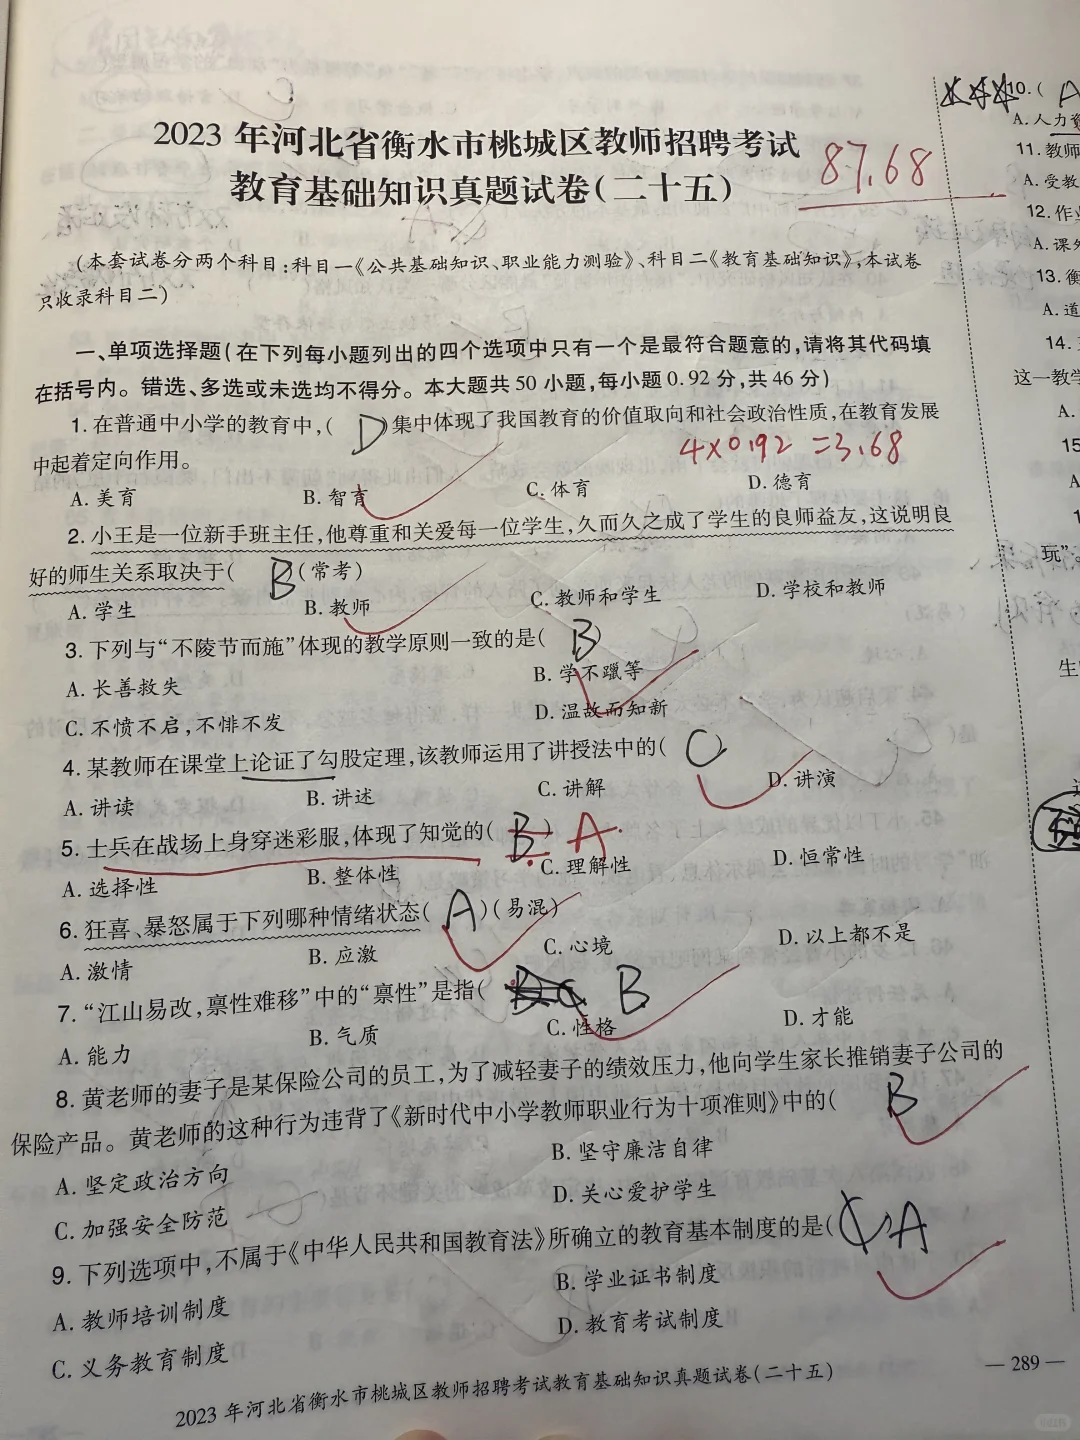 2023 年河北省衡水市桃城区教师招聘考试
教育基础知识真题试卷(二十五)
87.68
(本套试卷分两个科目:科目一《公共基础知识、职业能力测验》、科目二《教育基础知识》,本试卷
只收录科目二)
一、单项选择题(在下列每小题列出的四个选项中只有一个是最符合题意的,请将其代码填
在括号内。错选、多选或未选均不得分。本大题共 50 小题,每小题 0.92 分,共 46 分)
1. 在普通中小学的教育中,( D )集中体现了我国教育的价值取向和社会政治性质,在教育发展
中起着定向作用。
4×0.92 =3.68
A. 美育 B. 智育 C. 体育 D. 德育
2. 小王是一位新手班主任,他尊重和关爱每一位学生,久而久之成了学生的良师益友,这说明良
好的师生关系取决于( B )(常考)
A. 学生 B. 教师 C. 教师和学生 D. 学校和教师
3. 下列与“不陵节而施”体现的教学原则一致的是( B )
A. 长善救失 B. 学不躐等
C. 不愤不启,不悱不发 D. 温故而知新
4. 某教师在课堂上论证了勾股定理,该教师运用了讲授法中的( C )
A. 讲读 B. 讲述 C. 讲解 D. 讲演
5. 士兵在战场上身穿迷彩服,体现了知觉的( B ) A
A. 选择性 B. 整体性 C. 理解性 D. 恒常性
6. 狂喜、暴怒属于下列哪种情绪状态( A )(易混)
A. 激情 B. 应激 C. 心境 D. 以上都不是
7. “江山易改,禀性难移”中的“禀性”是指( B
A. 能力 B. 气质 C. 性格 D. 才能
8. 黄老师的妻子是某保险公司的员工,为了减轻妻子的绩效压力,他向学生家长推销妻子公司的
保险产品。黄老师的这种行为违背了《新时代中小学教师职业行为十项准则》中的( B
A. 坚定政治方向 B. 坚守廉洁自律
C. 加强安全防范 D. 关心爱护学生
9. 下列选项中,不属于《中华人民共和国教育法》所确立的教育基本制度的是( ) A
A. 教师培训制度 B. 学业证书制度
C. 义务教育制度 D. 教育考试制度
2023 年河北省衡水市桃城区教师招聘考试教育基础知识真题试卷(二十五)
— 289 —
10. ( A
A. 人力资
11. 教师
A. 受教
12. 作业
A. 课外
13. 衡
A. 道
14.
这一教学
A.
15
A
玩”。
生